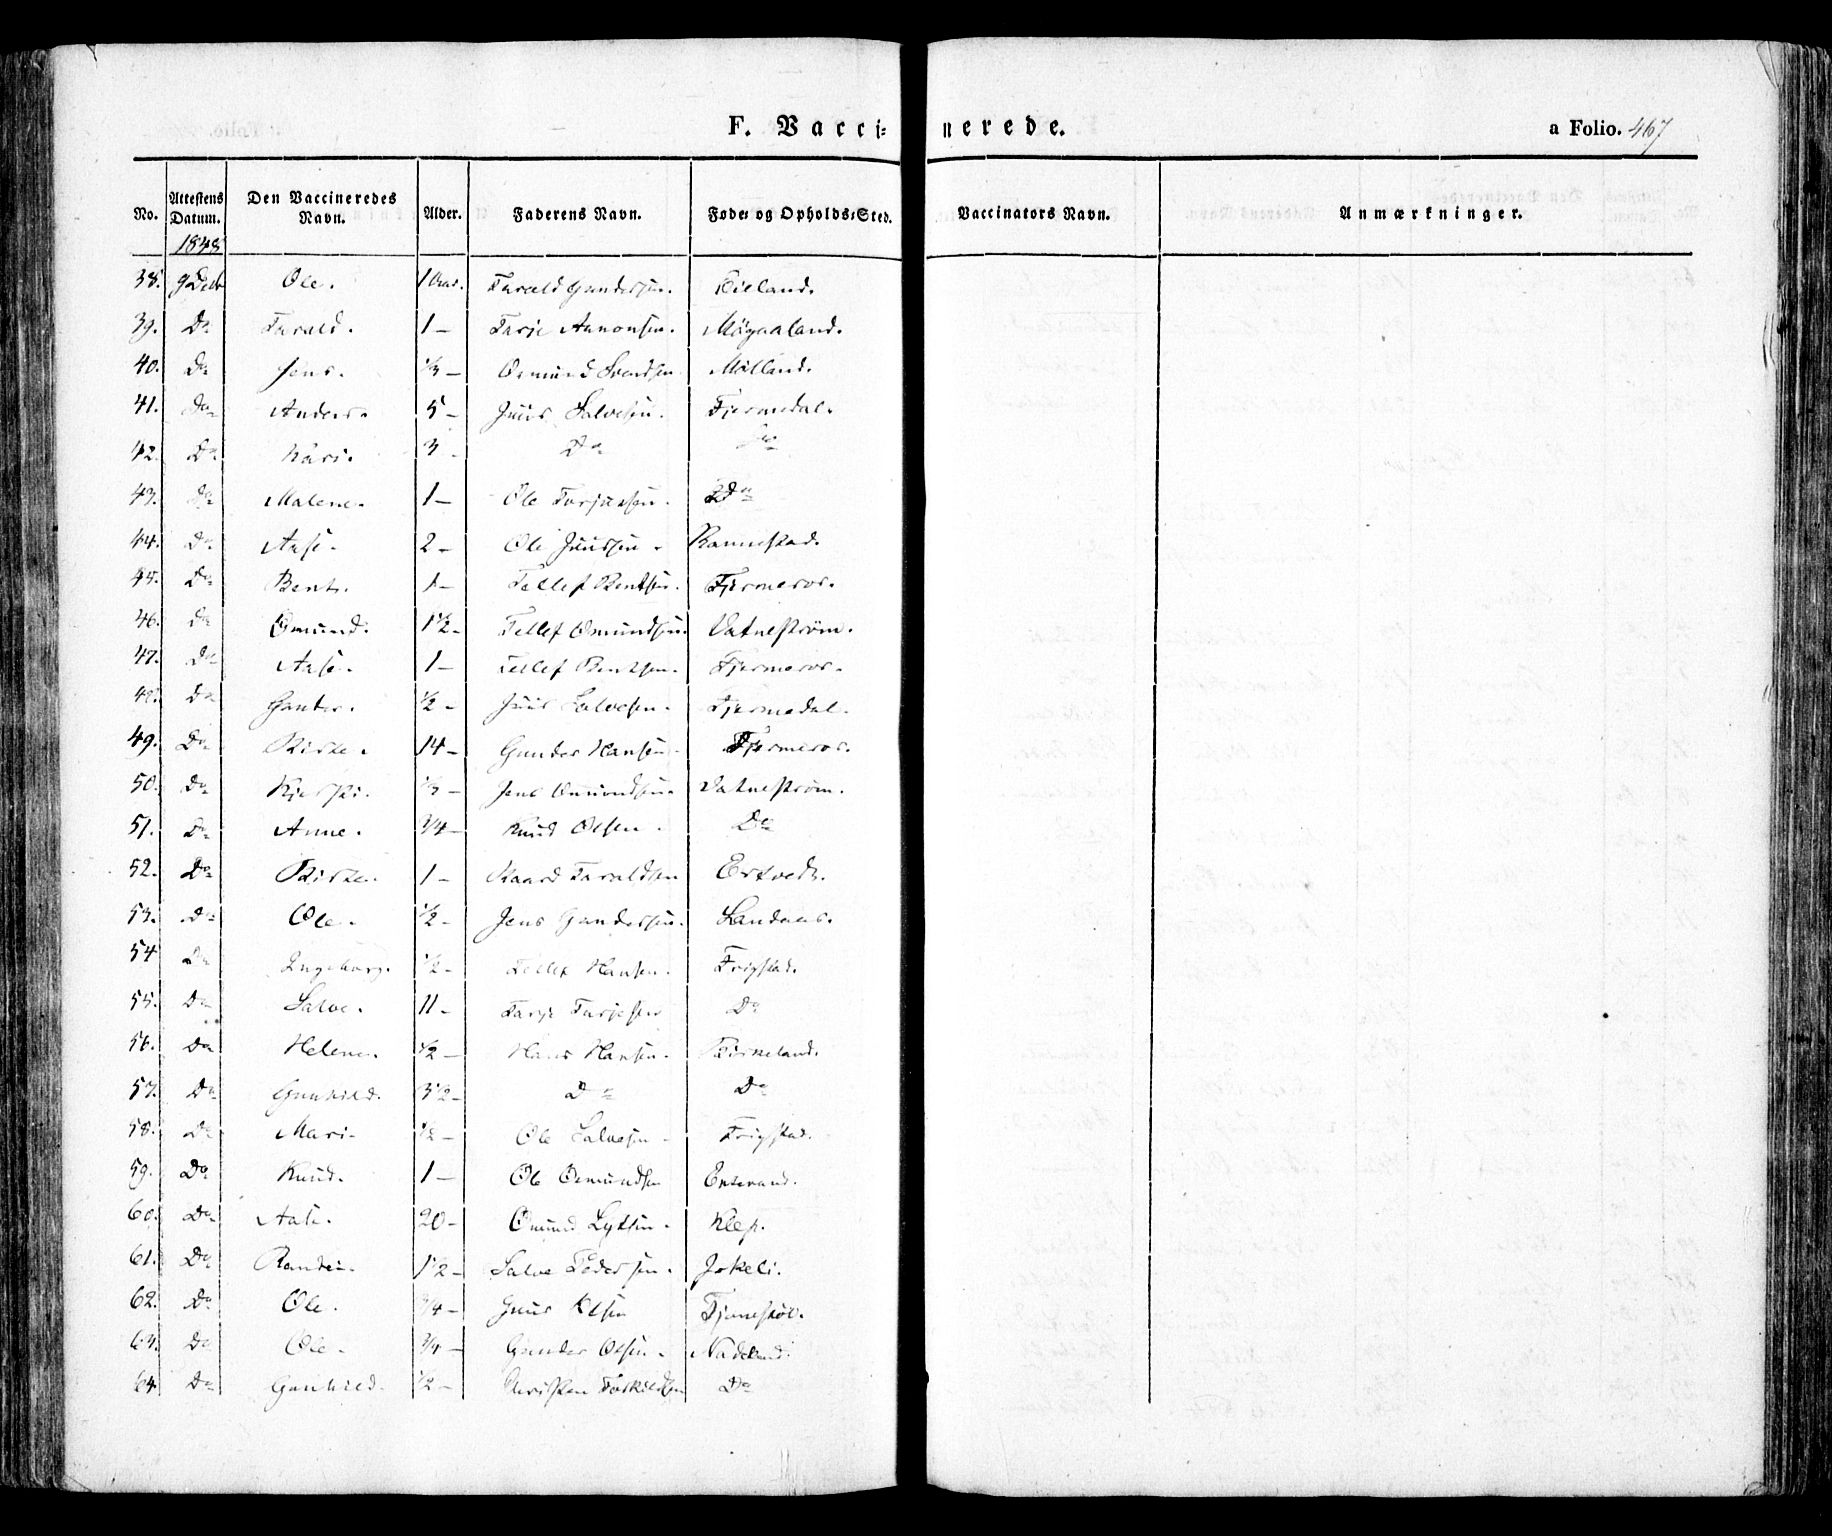 F. Vaccinerede.
a Folio. 467
No. Attestens Datum. Den Vaccineredes Navn. Alder. Faderens Navn. Føde- og Opholds-Sted. Vaccinators Navn. Anmærkninger.
1848
38. 9 Decb Ole. 1 Aar. Tarald Gundersen. Eieland.
39. Do Tarald. 1 – Tarje Aanonsen. Mögaaland.
40. Do Jens. 1/3 – Osmund Svendsen Mölland.
41. Do Anders. 5 – Juus Salvesen. Fjermedal.
42. Do Kari. 3 – Do Do
43. Do Malene. 1 – Ole Tarjussen. Do
44. Do Aase. 2 – Ole Juussen. Rannestad.
45. Do Bent. 1 – Tellef Bentsen. Fjermeros.
46. Do Omund. 1 1/2 – Tellef Omundsen. Vatneström.
47. Do Aase. 1 – Tellef Bentsen. Fjermeros.
48. Do Gunder. 1/2 – Juus Salvesen. Fjermedal.
49. Do 14 – Gunder Hansen. Fjermeros.
50. Do Kjersti. 1/3 – Jens Omundsen. Vatneström.
51. Do Anne. 3/4 – Knud Olsen. Do
52. Do 1 – Kaard Taraldsen Ertvedt.
53. Do Ole. 1/2 – Jens Gundersen. Landaas.
54 Do Ingeborg. 1/2 – Tellef Hansen. Frigstad.
55. Do Salve. 11 – Tarje Tarjesen Do
56. Do Helene. 1/2 – Hans Hansen. Birkeland.
57. Do Gunhild. 3 1/2 – Do Do
58. Do Mari. 1/2 – Ole Salvesen – Frigstad.
59. Do Knud. 1 – Ole Osmundsen
60. Do Aase. 20 – Omund Klep.
61. Do 1 1/2 – Salve Pedersen. Jokeli.
62. Do Ole. 3/4 – Guus Olsen
63. Do Ole. 3/4 – Gunder Olsen. Nadeland.
64 Do Gunhild. 1/2 – Christen Torkildsen Do